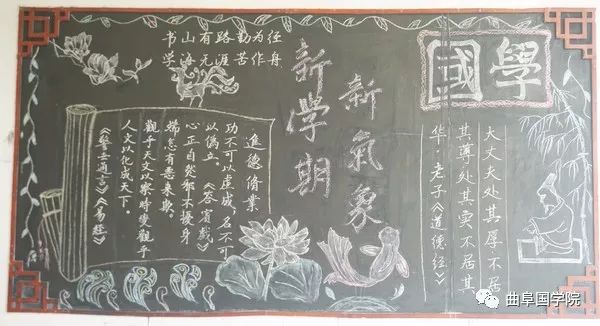 书山有路勤为径
学海无涯苦作舟
國學
新氣象
新学期
大丈夫处其厚不居
其尊处其实不居其
华·老子《道德经》
進德脩業
功不可以虚成，名不可
以偽立。《答賓戲》
心正自然邪不擾身
端怎有惡来欺。
觀乎天文以察時变觀乎
人文以化成天下。
《警世通言》《易經》
曲阜国学院